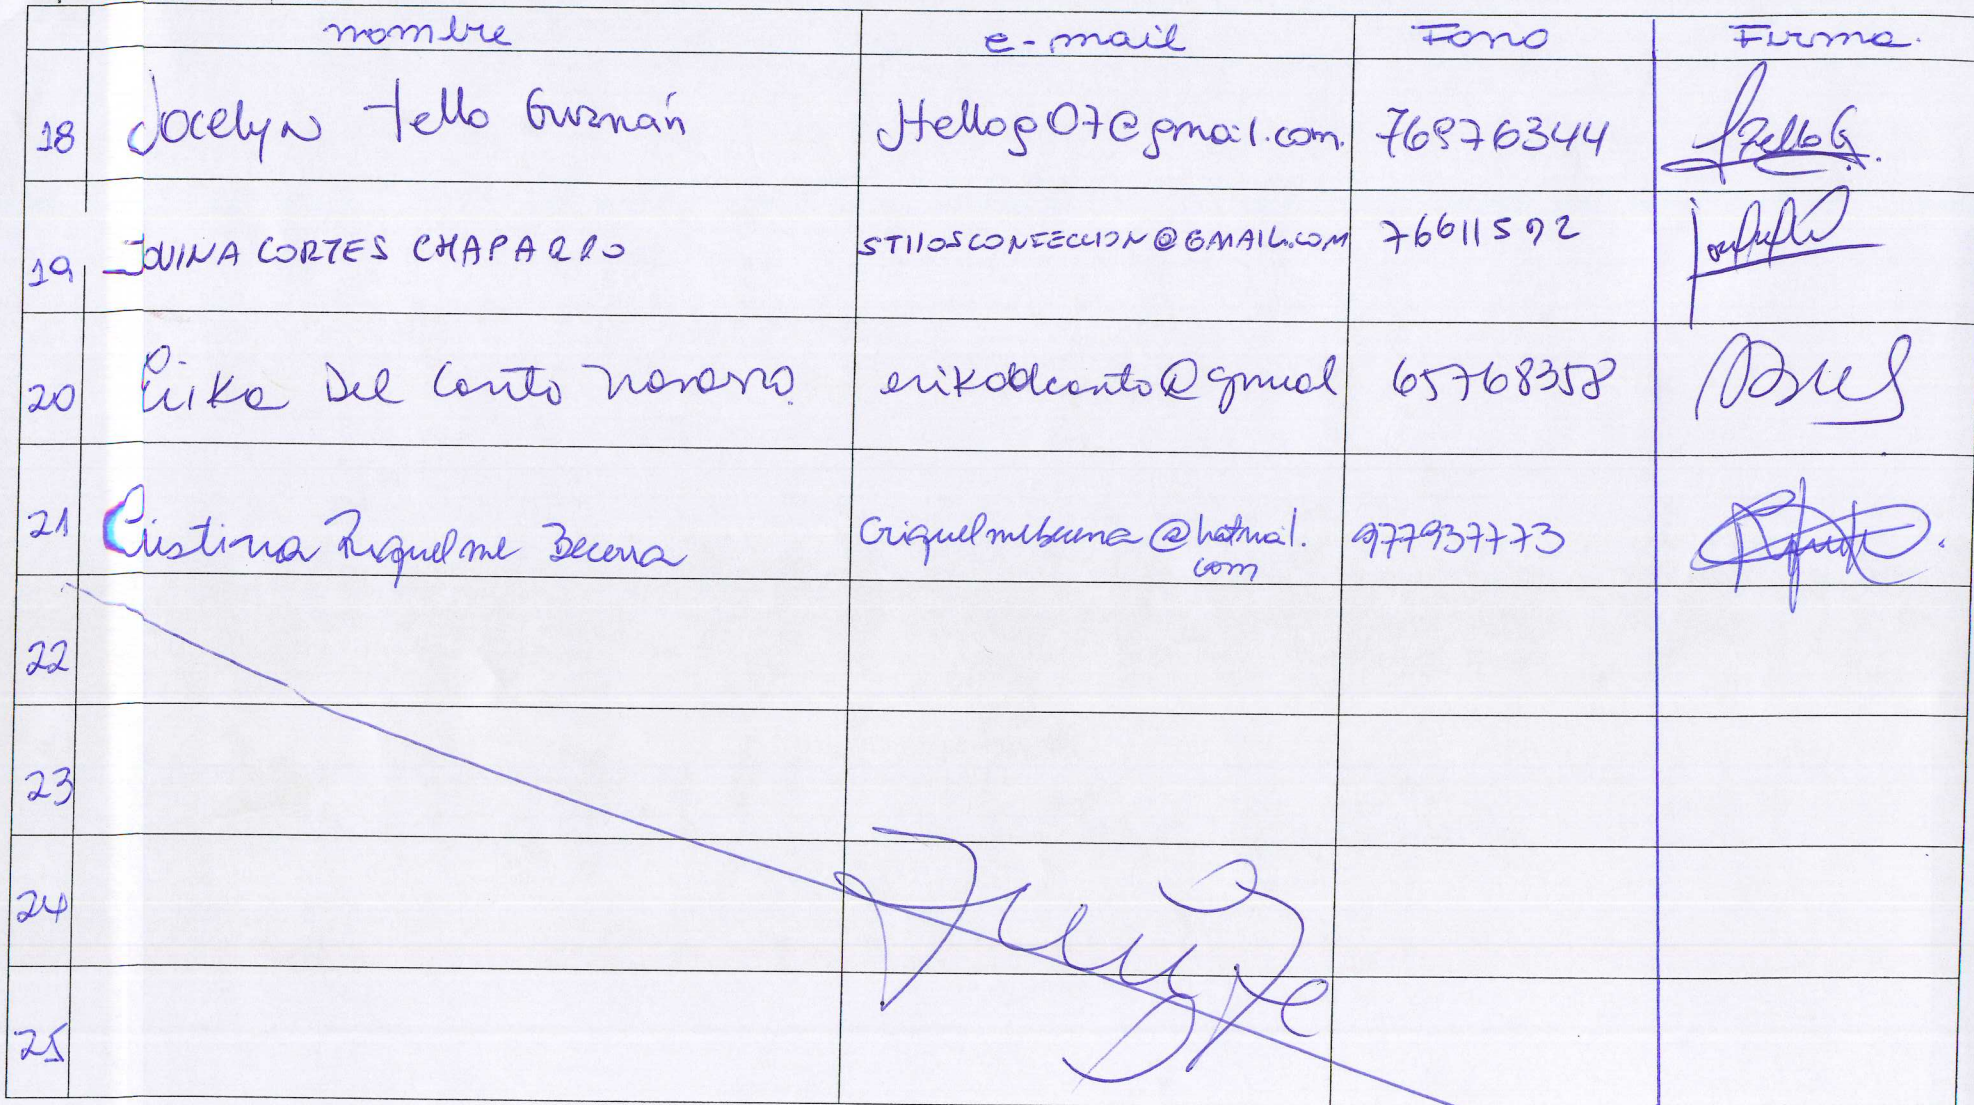 nombre e-mail Fono Firma.
18 Jocelyn Tello Guzmán Jtellog07@gmail.com. 76976344 JTelloG.
19 JOVINA CORTES CHAPARRO STILOSCONFECCION@GMAIL.COM 76611592
20 Erika Del Canto Navarro. erikadelcanto@gmial 65768358
21 Cristina Riquelme Becerra Criquelmebecerra@hotmail. 977937773
com
22
23
24
25